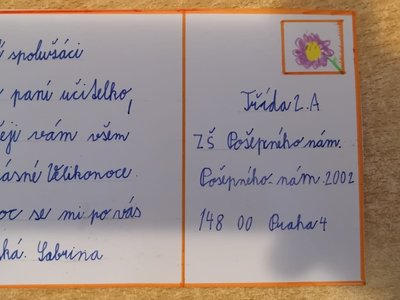 spolužáci
paní učitelko,
vám všem
Velikonoce.
se mi po vás
Sabrina
Třída 2.A
ZŠ Pošepného nám.
Pošepného nám. 2002
148 00 Praha 4